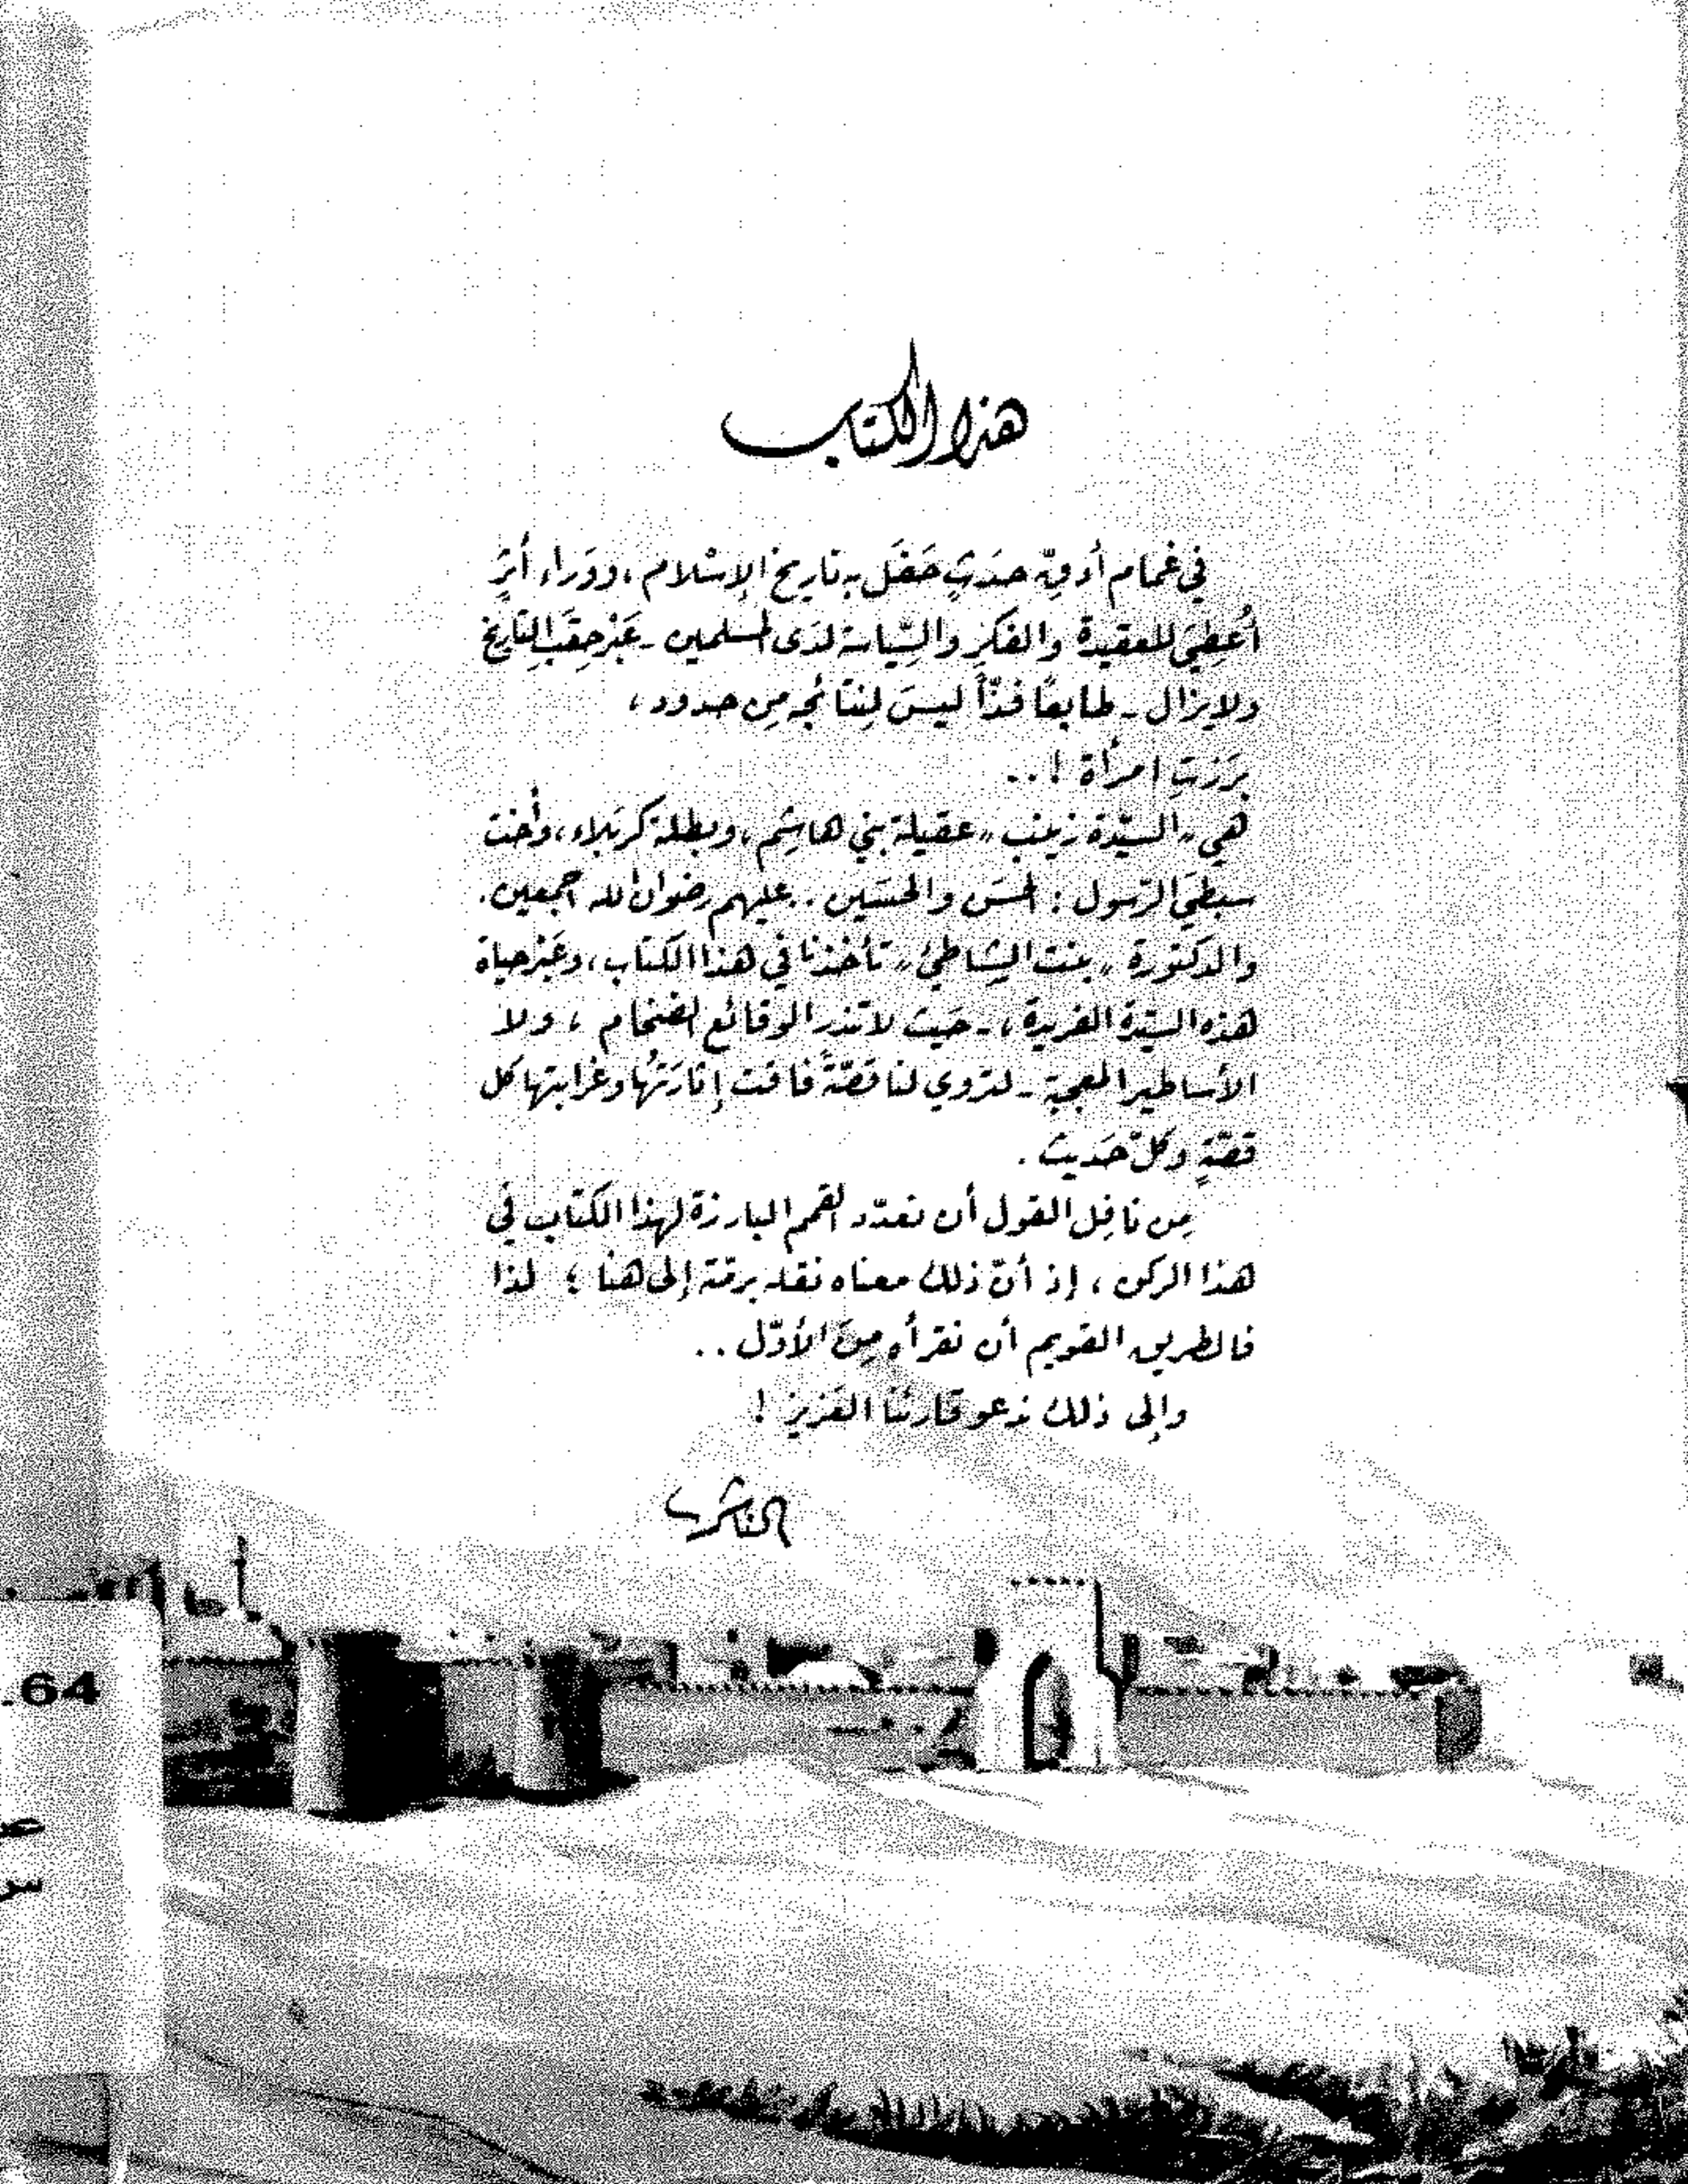 هذا الكتاب
في غمام أدقّ حدَثٍ حَفَل به تاريخ الإسْلام، ووَراء أثرٍ
أُعطِيَ للعقيدة والفكرِ والسِّياسة لدَى المسلمين - عَبْر حِقَبِ التاريخ
ولايزال - طابعًا فذّاً ليسَ لِنتائجه مِن حدود،
بَرَزتِ امرأة !..
هي "السيّدة زينب" عقيلة بَني هاشِم، وبطلة كربَلاء، وأخت
سبطَيِ الرّسول : الحسَن والحسَين .. عليهم رضوان الله أجمعين.
والدكتورة "بنت الشاطئ" تأخذنا في هذا الكتاب، وعَبْر حياة
هذه السيّدة الفريدة، - حَيث لا تندر الوقائع الضخام ، ولا
الأساطير المعجبة - لتروي لنا قصّةً فاقت إثارَتُها وغرابتها كل
قصّةٍ وكلّ حَديث .
مِن نافِل القول أن نعدّد القمم البارزة لهذا الكتاب في
هذا الركن ، إذ أنّ ذلك معناه نقله برمّته إلى هنا ؛ لذا
فالطريق القويم أن نقرأه مِنَ الأوّل ..
وإلى ذلك ندعو قارئنا العَزيز !
الناشر
.64